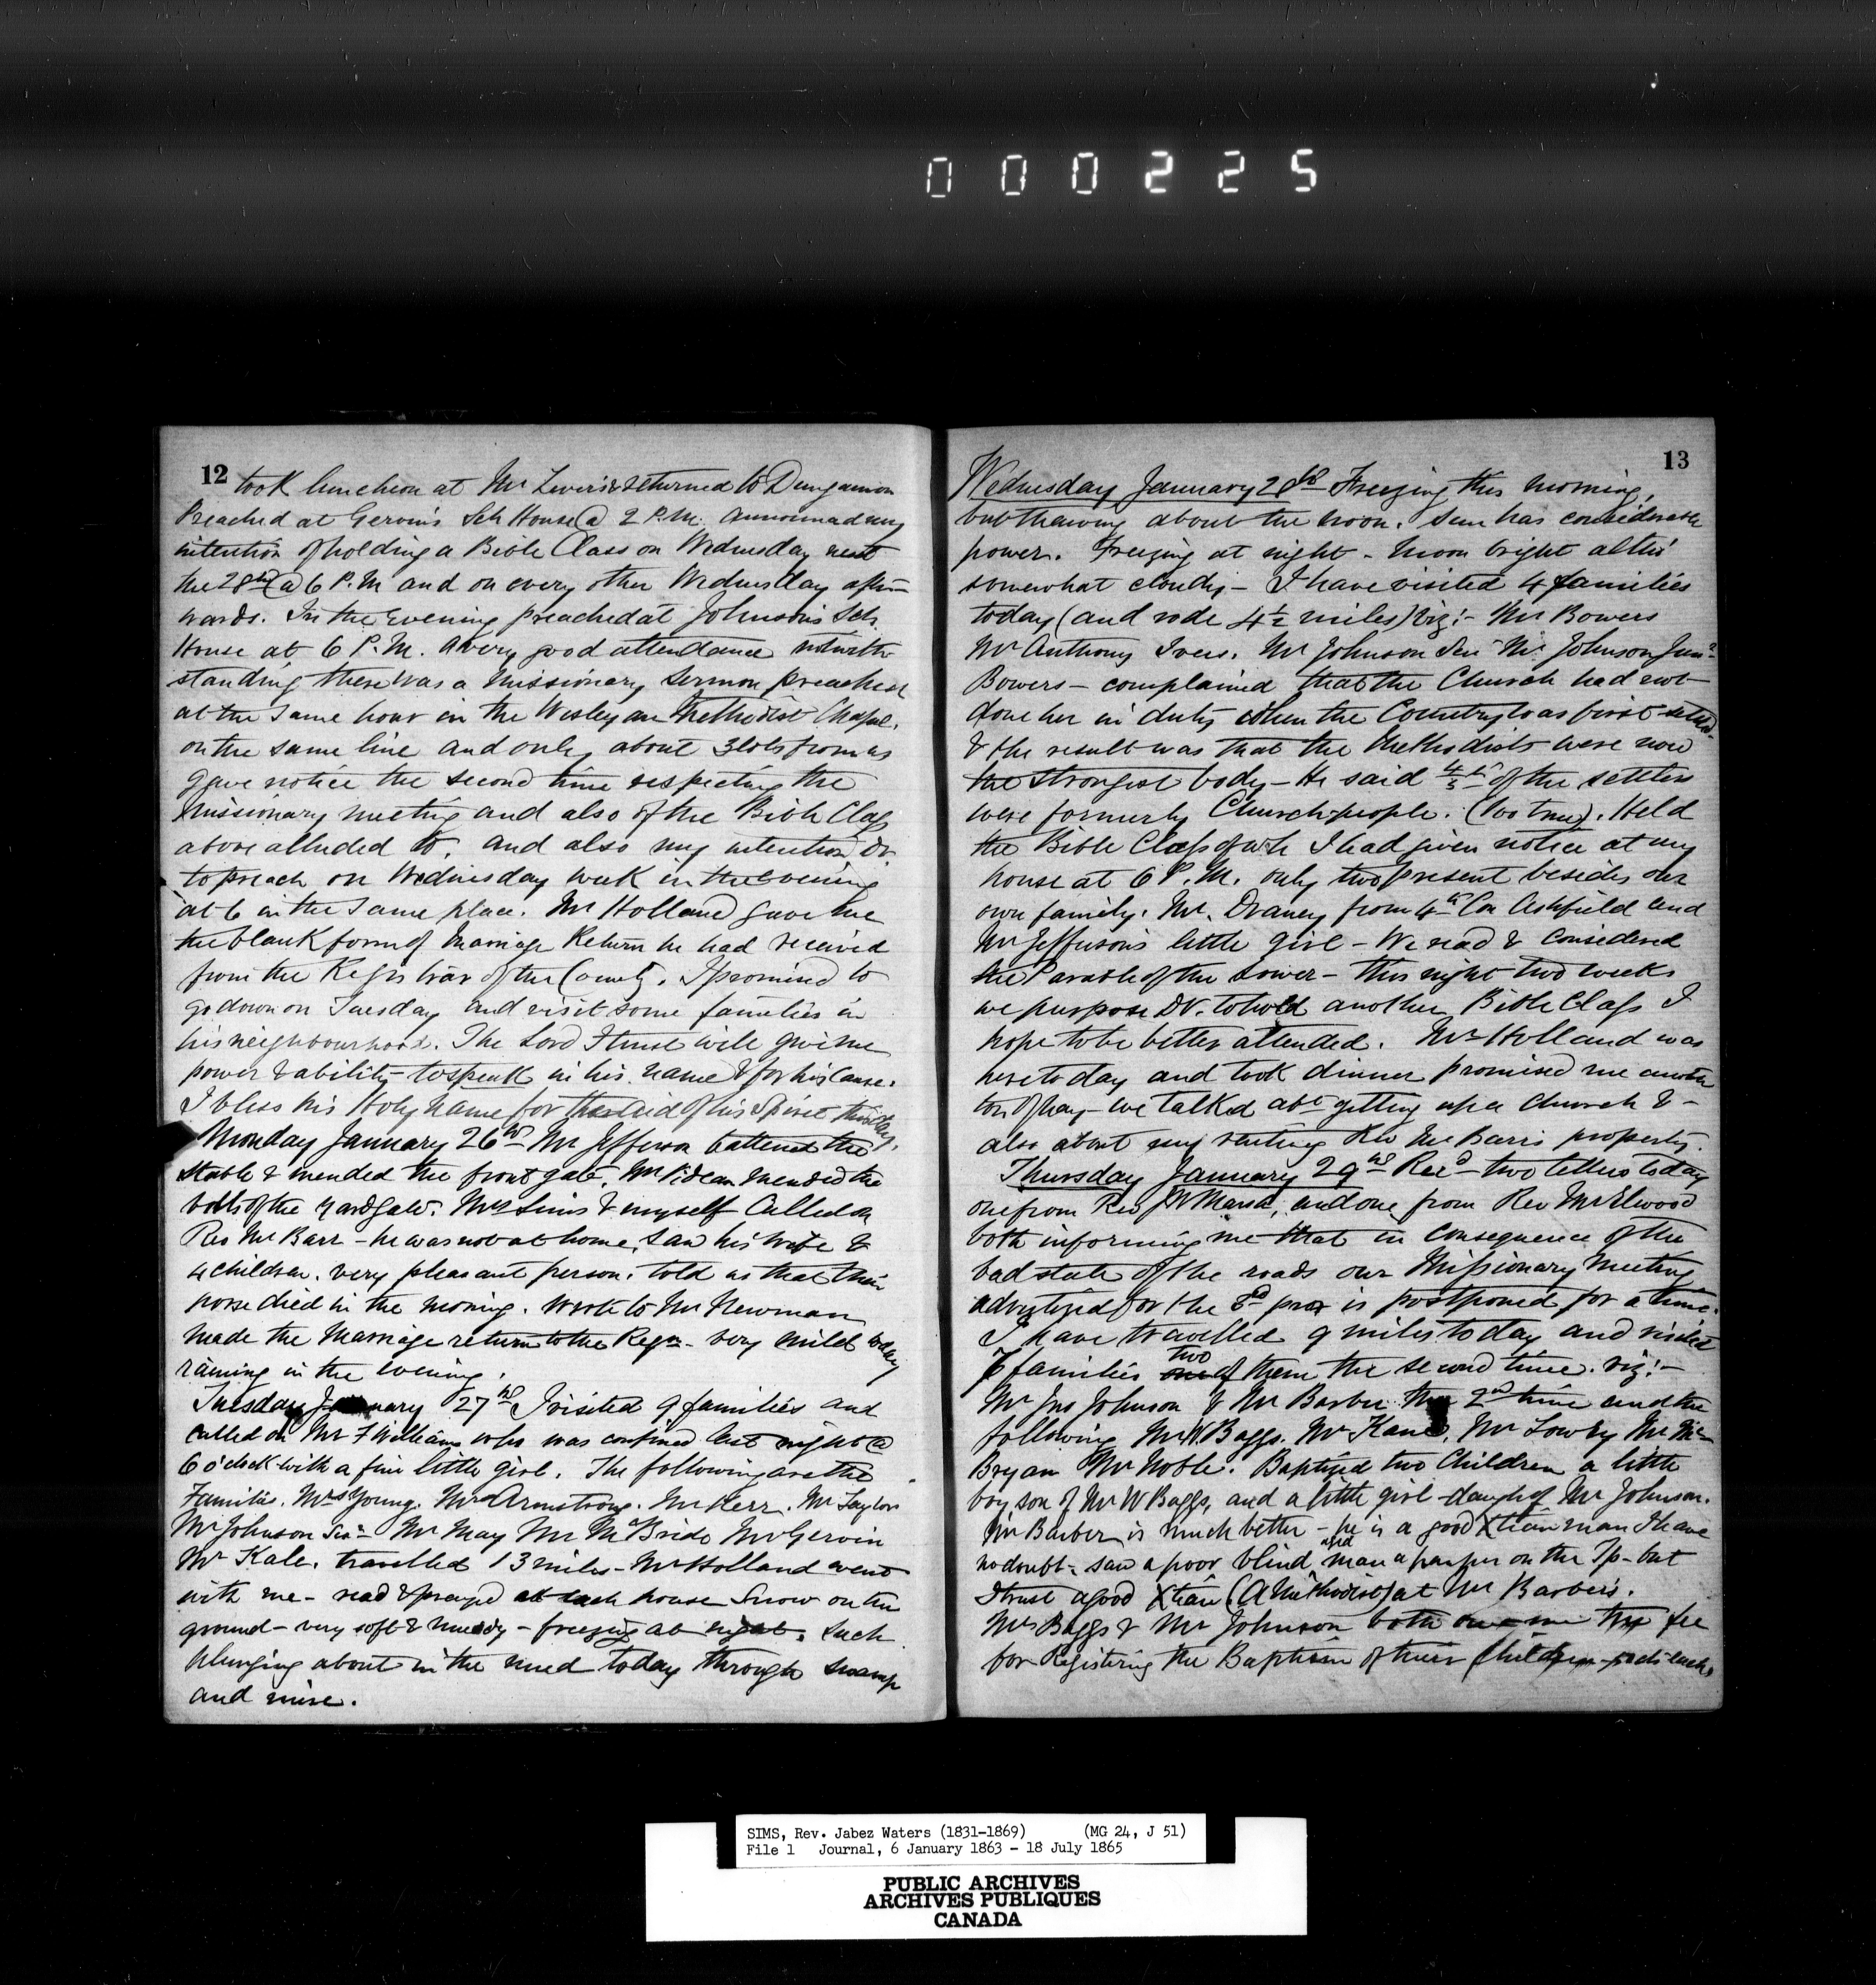 000225
12
took luncheon at Mr Ivers & returned to Dungannon
Preached at Gervin's Sch House @ 2 P.M. announced my
intention of holding a Bible Class on Wednesday next
the 28th @ 6 P.M and on every other Wednesday after-
wards. In the Evening preached at Johnson's Sch.
House at 6 P.M. a very good attendance notwith
standing there was a Missionary Sermon preached
at the same hour in the Wesleyan Methodist Chapel.
on the same line and only about 3 lots from us
gave notice the second time respecting the
Missionary meeting and also of the Bible Class
above alluded to. and also my intention D.V.
to preach on Wednesday week in the Evening
at 6 in the same place. Mr Holland gave me
the blank form of Marriage Return he had received
from the Registrar of the County. I promised to
go down on Tuesday and visit some families in
his neighbourhood. The Lord I trust will give me
power & ability to speak in his name & for his Cause.
I bless his Holy name for the aid of his Spirit this day.
Monday January 26th Mr Jefferson battened the
stable & mended the front gate. Mr Pidean mended the
bolts of the yard gate. Mrs Sims & myself Called on
Rev Mr Barr - he was not at home, saw his wife &
4 children. very pleasant person. told us that their
horse died in the morning. wrote to Mr Newman
made the Marriage return to the Regr - very mild today
raining in the evening.
Tuesday January 27th I visited 9 families and
called on Mrs F Williams who was confined last night @
6 o'clock with a fine little girl. The following are the
Families. Mrs Young. Mr Armstrong. Mr Kerr. Mr Taylor
Mr Johnson Senr Mr May Mr McBride Mr Gervin
Mr Kale. travelled 13 miles - Mr Holland went
with me - read & prayed at each house Snow on the
ground - very soft & muddy - freezing at night. Such
plunging about in the mud today through swamp
and mire.
13
Wednesday January 28th Freezing this morning,
but thawing about the noon. Sun has considerable
power. Freezing at night - Moon bright altho'
somewhat cloudy - I have visited 4 families
today (and rode 4½ miles) viz:- Mr Bowers
Mr Anthony Ivers. Mr Johnson Sen Mr Johnson Junr
Bowers - complained that the Church had not
done her in duty when the Country was first settled.
& the result was that the Methodists were now
the strongest body - He said 4/5ths of the settlers
were formerly Church-people. (too true). Held
the Bible Class of wh I had given notice at my
house at 6 P.M. only two present besides our
own family. Mr. Draney from 4th Con Ashfield and
Mr Jefferson's little girl - We read & considered
the Parable of the Sower - this night two weeks
we purpose DV. to hold another Bible Class I
hope to be better attended. Mr Holland was
here today and took dinner promised me another
ton of hay - we talked abt getting up a Church & -
also about my renting Rev Mr Barr's property.
Thursday January 29th Recd two letters today
one from Rev JW Marsh, and one from Rev Mr Elwood
both informing me that in consequence of the
bad state of the roads our Missionary Meeting
advertized for the 3d prox is postponed for a time.
I have travelled 9 miles today and visited
7 families one two of them the second time. viz:-
Mr Jno Johnson & Mr Barber the 2nd time and the
following Mr W. Baggs. Mr Kane, Mr Lowry Mr Mc-
Bryan Mr Noble. Baptized two Children a little
boy son of Mr W Baggs, and a little girl daugh of Mr Johnson.
Mr Barber is much better - he is a good Xtian man I have
no doubt - saw a poor blind old man a pauper on the Tp - but
I trust a good Xtian (a Methodist) at Mr Barber's.
Mrs Baggs & Mr Johnson both me the fee
for Registering the Baptism of their Children - each.
SIMS, Rev. Jabez Waters (1831-1869) (MG 24, J 51)
File 1 Journal, 6 January 1863 - 18 July 1865
PUBLIC ARCHIVES
ARCHIVES PUBLIQUES
CANADA